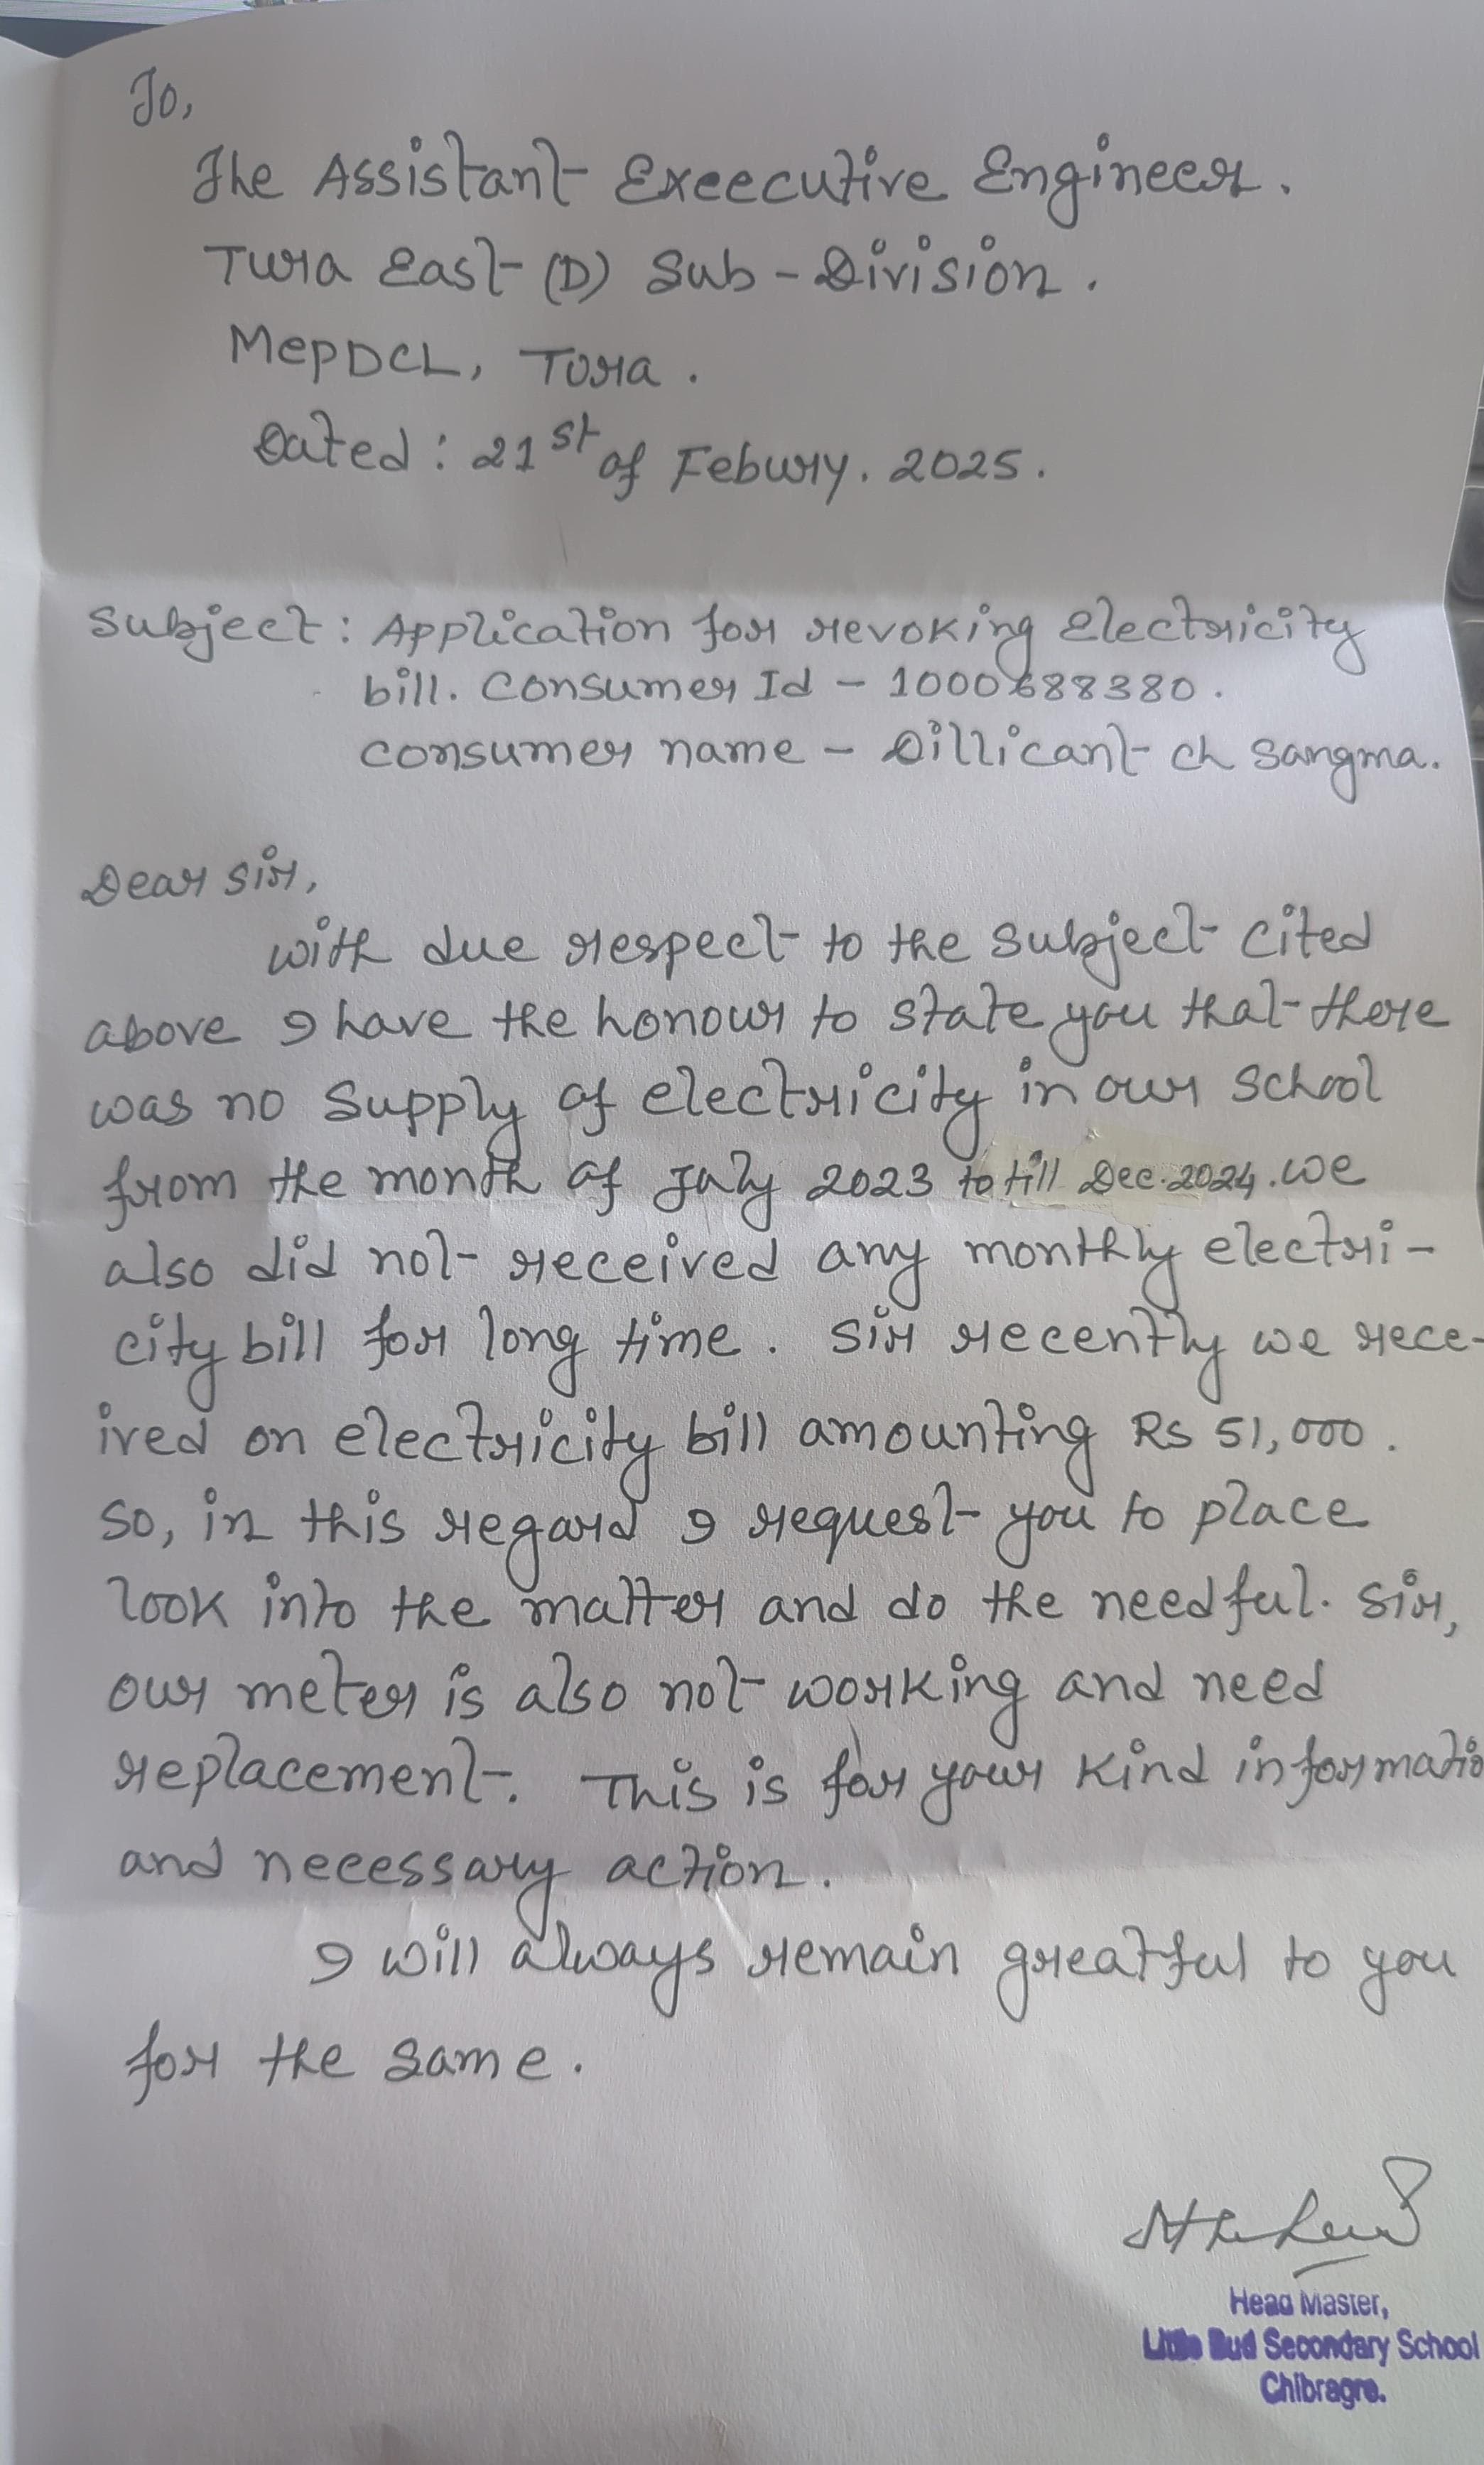 To,
The Assistant Exeecutive Engineer.
Tura East (D) Sub-Division.
MepDCL, Tura.
Dated: 21st of Febury. 2025.
Subject: Application for revoking Electricity
bill. Consumer Id - 1000688380.
Consumer name - Dillicant ch Sangma.
Dear sir,
with due respect to the subject cited
above I have the honour to state you that there
was no supply of electricity in our school
from the month of July 2023 to till Dec. 2024. we
also did not received any monthly electri-
city bill for long time. Sir recently we rece-
ived on electricity bill amounting Rs 51,000.
So, in this regard I request you to place
look into the matter and do the needful. Sir,
our meter is also not working and need
replacement. This is for your kind informatio
and necessary action.
I will always remain greatful to you
for the same.
Head Master,
Little Bud Secondary School
Chibragre.